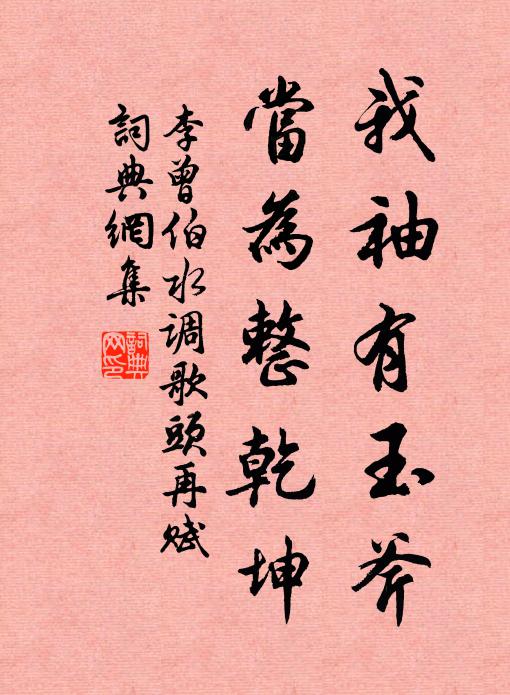 我袖有玉斧
當為整乾坤
李曾伯水调歌頭再赋
詞典網集
詞典網印